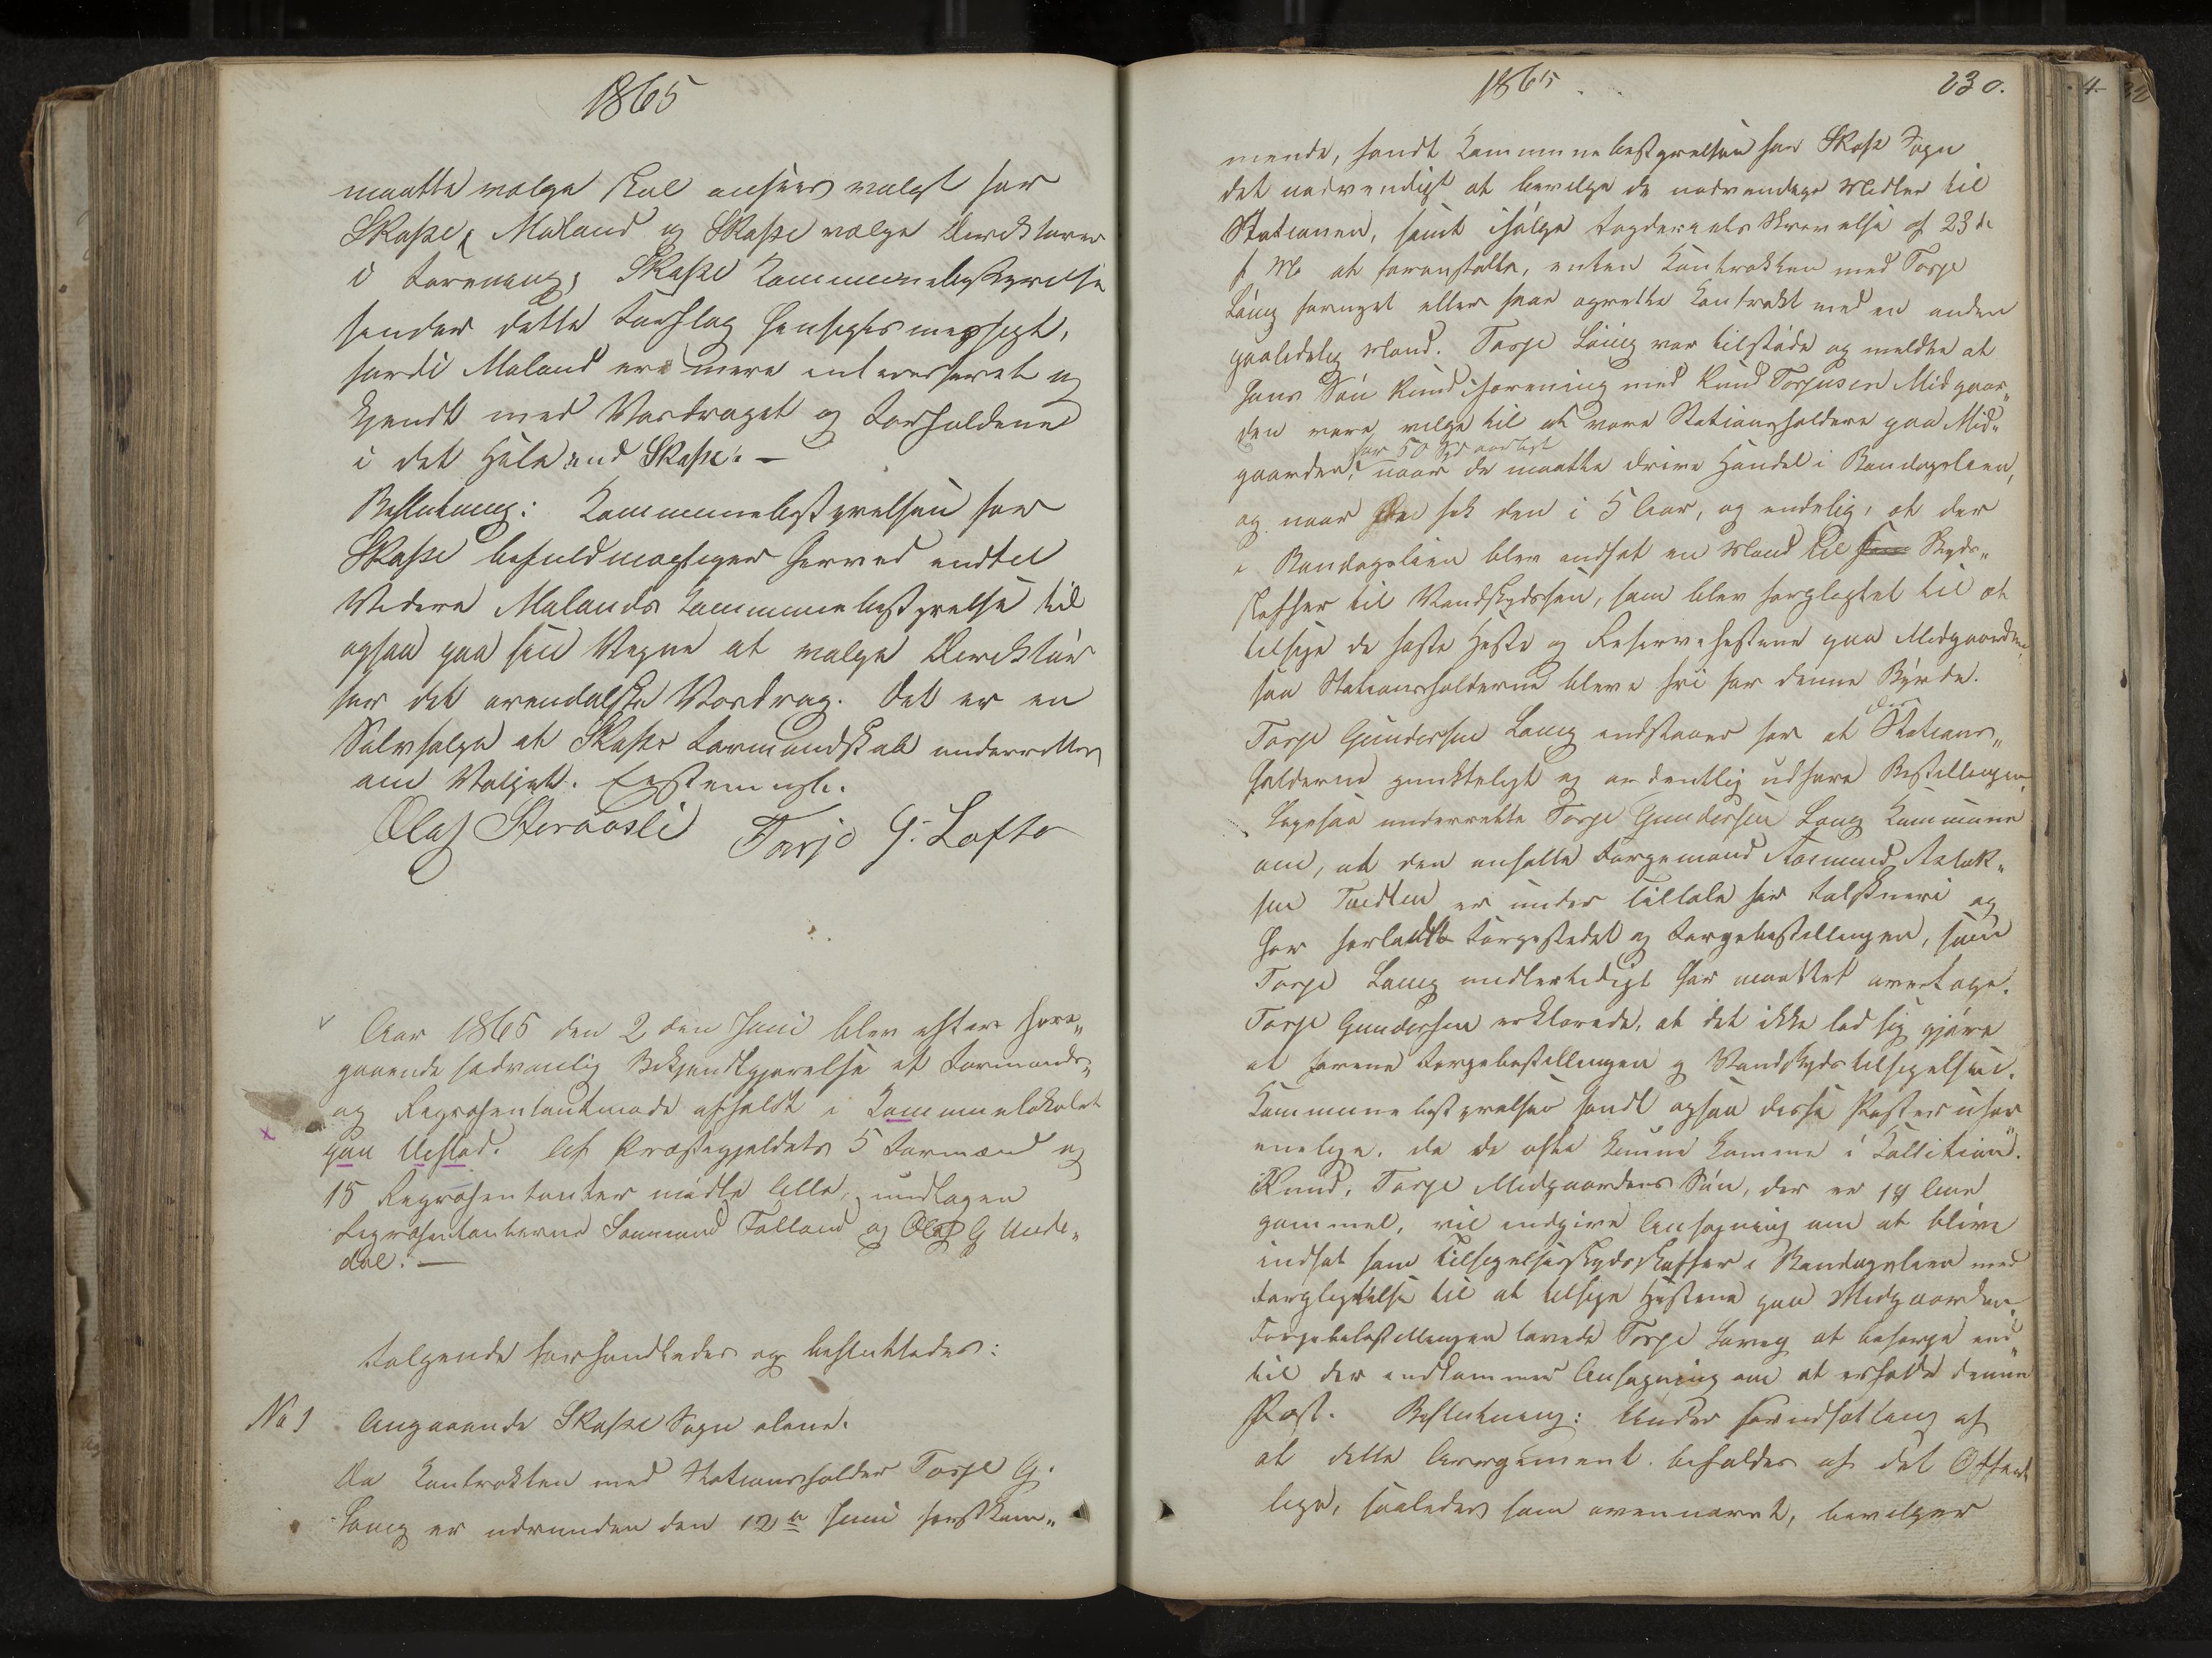 1865
maatte vælge skal ansees valgt for
Skafse, Moland og Skafse vælge Direktører
i Forening; Skafse Kommunebestyrelse
finder dette Forslag hensigtsmæssigt,
fordi Moland er mere interesseret og
kjendt med Vasdraget og Forholdene
i det Hele end Skafse. —
Beslutning: Kommunebestyrelsen for
Skafse befuldmægtiger herved indtil
Videre Molands Kommunebestyrelse til
ogsaa paa sin Vegne at vælge Direktør
for det arendalske Vasdrag. Det er en
Selvfølge at Skafse Formandskab underrettes
om Valget. Eenstemmigt.
Olaf Steraasli Torje G. Lofto
Aar 1865 den 2den Juni blev efter fore„
gaaende sædvanlig Bekjendtgjørelse et Formands„
og Repræsentantmøde afholdt i Kommunelokalet
paa Vefstad. Af Præstegjeldets 5 Formænd og
15 Repræsentanter mødte Alle, undtagen
Repræsentanterne Saamund Tolland og Olaf G Unde„
dal. —
Følgende forhandledes og besluttedes:
No 1 Angaaende Skafse Sogn alene.
Da Kontrakten med Stationsholder Torje G.
Laug er udrunden den 12te Juni førstkom„
1865
230.
mende, fandt Kommunebestyrelsen for Skafse Sogn
det nødvendigt at bevilge de nødvendige Midler til
Stationen, samt ifølge Fogderiets Skrivelse af 23de
f. M. at foranstalte, enten Kontrakten med Torje
Laug fornyet eller faae oprettet Kontrakt med en anden
paalidelig Mand. Torje Laug var tilstede og meldte at
hans Søn Knud i Forening med Knud Torjusen Midgaar„
den vare vilge til at være Stationsholdere paa Mid„
for 50 Spd aarligt
gaarden, naar de maatte drive Handel i Bandagslien,
og naar de fik den i 5 Aar, og endelig, at der
i Bandagslien blev ansat en Mand til som Skyds„
skaffer til Vandskydsen, som blev forpligtet til at
tilsige de faste Heste og Reservehestene paa Midgaarden,
saa Stationsholderne bleve fri for denne Byrde.
de
Torje Gundersen Laug indstaaer for at Stations„
holderne punkteligt og ordentlig udføre Bestillingen.
Ligesaa underrette Torje Gundersen Laug Kommunen
om, at den ansatte Færgemand Aamund Aslak„
sen Tvedten er under Tiltale for Falskneri og
har forladt Færgestedet og Færgebestillingen, som
Torje Laug midlertidigt har maattet overtage.
Torje Gundersen erklærede, at det ikke lod sig gjøre
at forene Færgebestillingen og Vandskydstilsigelsen.
Kommunebestyrelsen fandt ogsaa disse Poster ufor
enelige, da de ofte kunne komme i Kollision.
Knud, Torje Midgaardens Søn, der er 18 Aar
gammel, vil indgive Ansøgning om at blive
indsat som Tilsigelsesskydsskaffer i Bandagslien med
Forpligtelse til at tilsige Hestene paa Midgaarden.
Færgebestillingen lovede Torje Laug at besørge ind„
til der indkommer Ansøgning om at erholde denne
Post. Beslutning: Under Forudsætning af
at dette Arrgiment beholdes af det Offent
lige, saaledes som ovennævnt, bevilger